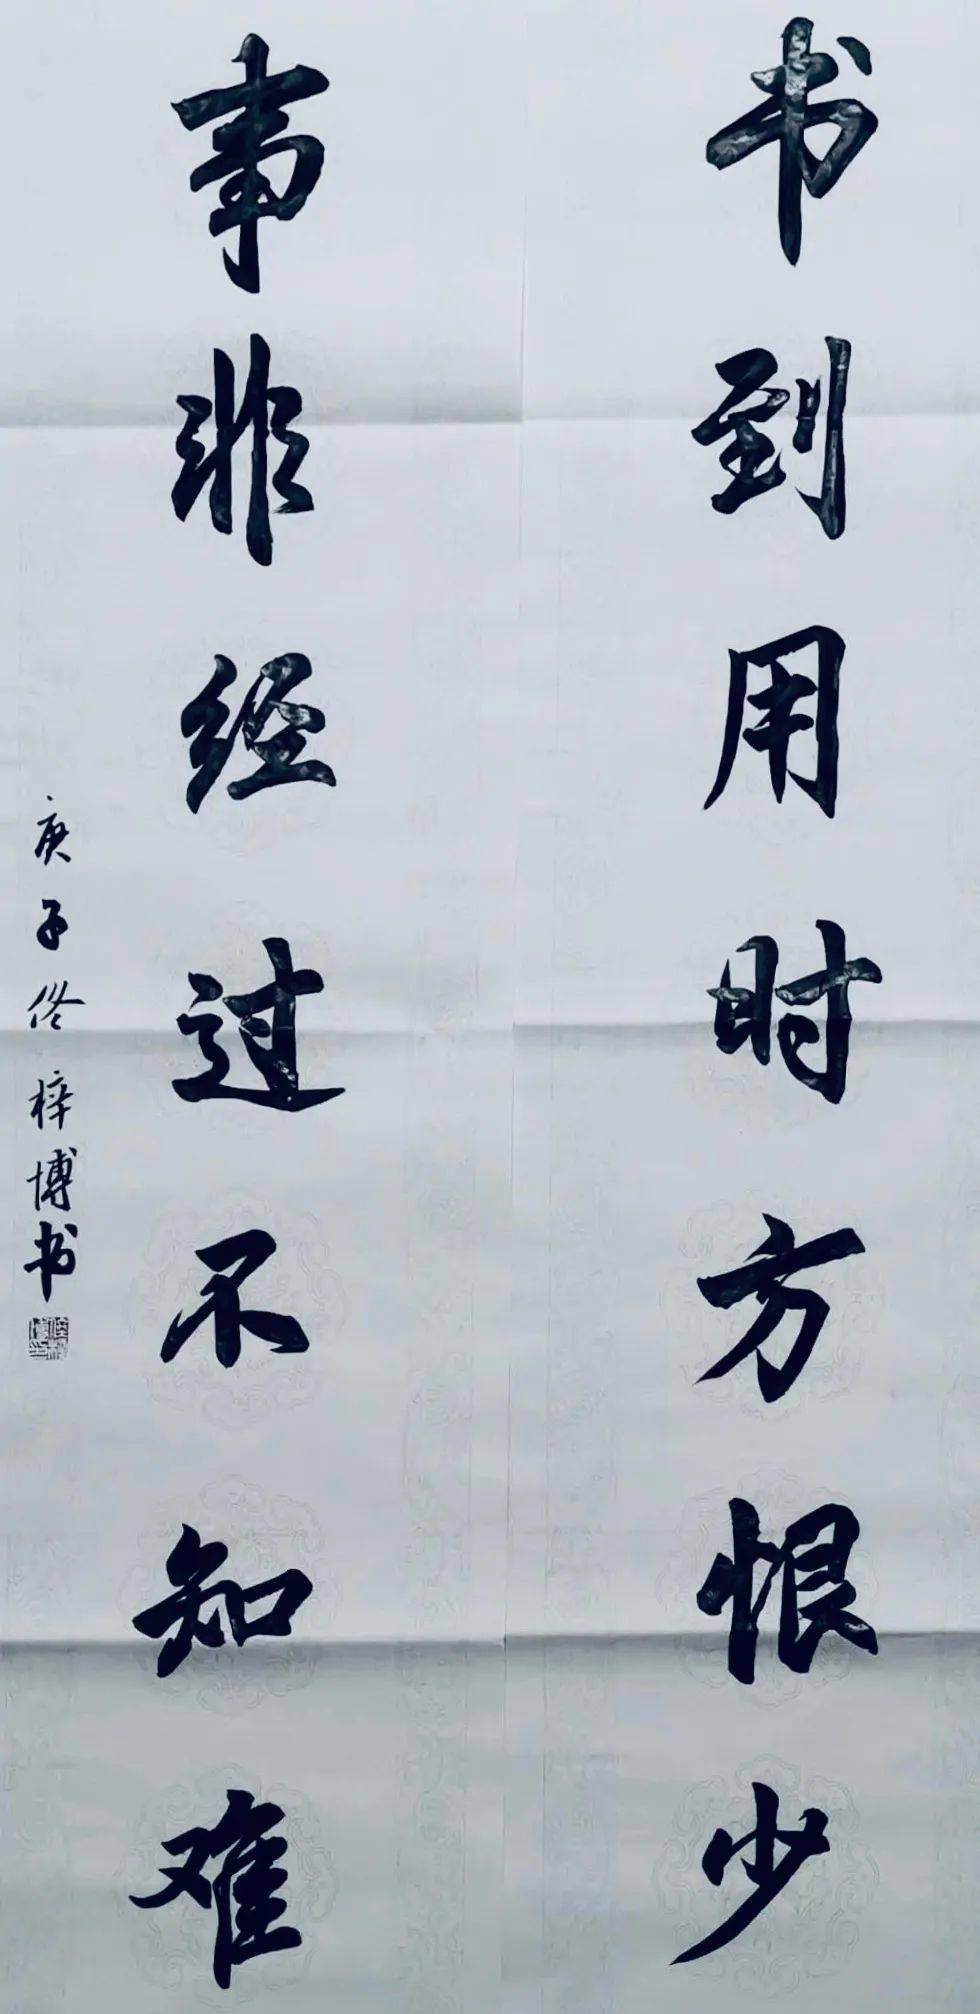 书到用时方恨少
事非经过不知难
庚子佟梓博书